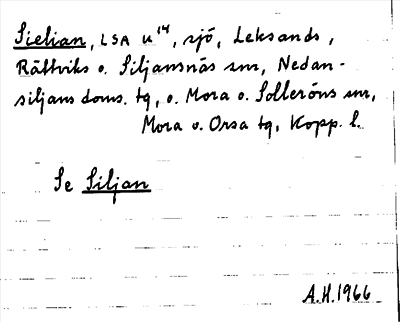 Sielian, LSA u¹⁴, sjö, Leksands,
Rättviks o. Siljansnäs snr, Nedan-
siljans doms. tg, o. Mora o. Solleröns snr,
Mora o. Orsa tg, Kopp. l.
Se Siljan
A.H. 1966